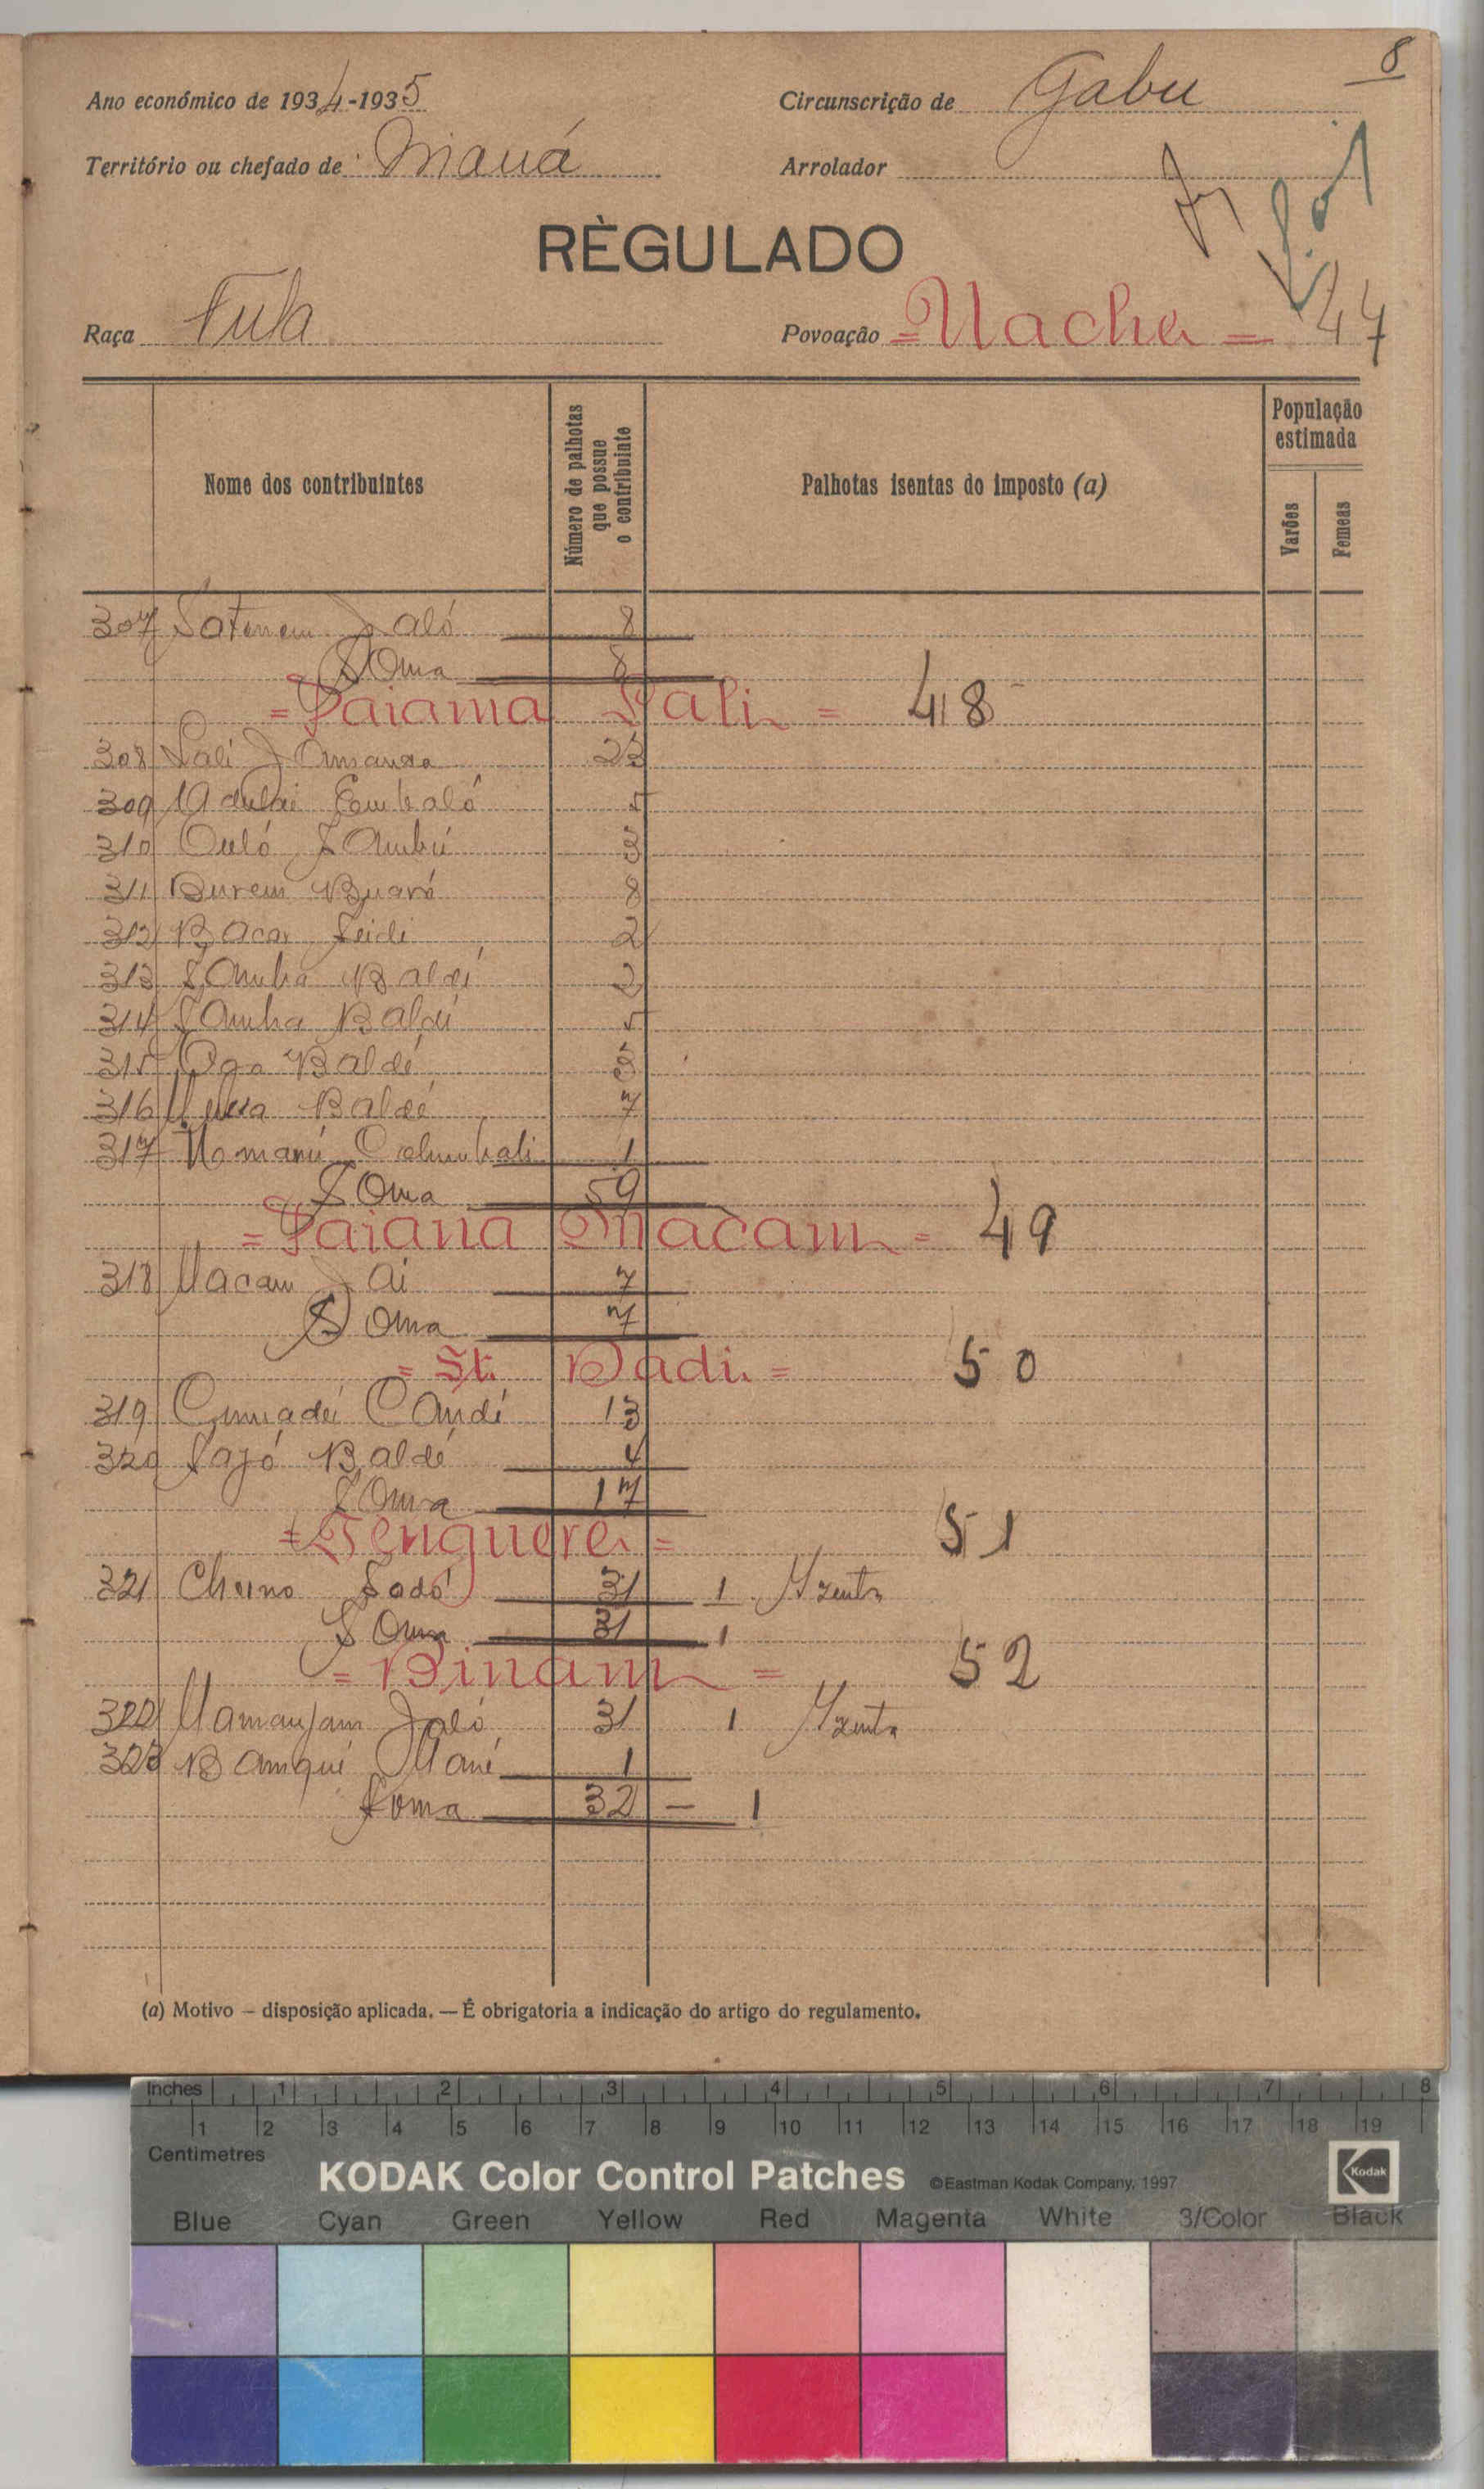 8
Ano económico de 1934-1935
Circunscrição de Gabu
Território ou chefado de Maná
Arrolador
RÈGULADO
Raça Fula
Povoação = Uacha = 47
Nome dos contribuintes
Número de palhotas que possue o contribuinte
Palhotas isentas do imposto (a)
População estimada
Varões
Femeas
307 Jaló 8
Soma 8
= Saiama Sali = 48
308 Sali 23
309 Embaló 5
310 Sambú 3
311 Burem Buaró 8
312 Bacar Seidi 2
313 Samba Baldé 2
314 Samba Baldé 5
315 Baldé 3
316 Baldé 7
317 1
Soma 59
= Saiana Macam = 49
318 Macam Jai 7
Soma 7
= St. Dadi = 50
319 Candé 13
320 Sajó Baldé 4
Soma 17
= Tenguere = 51
321 Cherno Sadó 31 1 Yzenta
Soma 31 1
= Binam = 52
322 Mamanjam Jaló 31 1 Yzenta
323 Banqui Mané 1
Soma 32 — 1
(a) Motivo — disposição aplicada. — É obrigatoria a indicação do artigo do regulamento.
Inches 1 2 3 4 5 6 7 8
1 2 3 4 5 6 7 8 9 10 11 12 13 14 15 16 17 18 19
Centimetres
KODAK Color Control Patches ©Eastman Kodak Company, 1997 Kodak
Blue Cyan Green Yellow Red Magenta White 3/Color Black